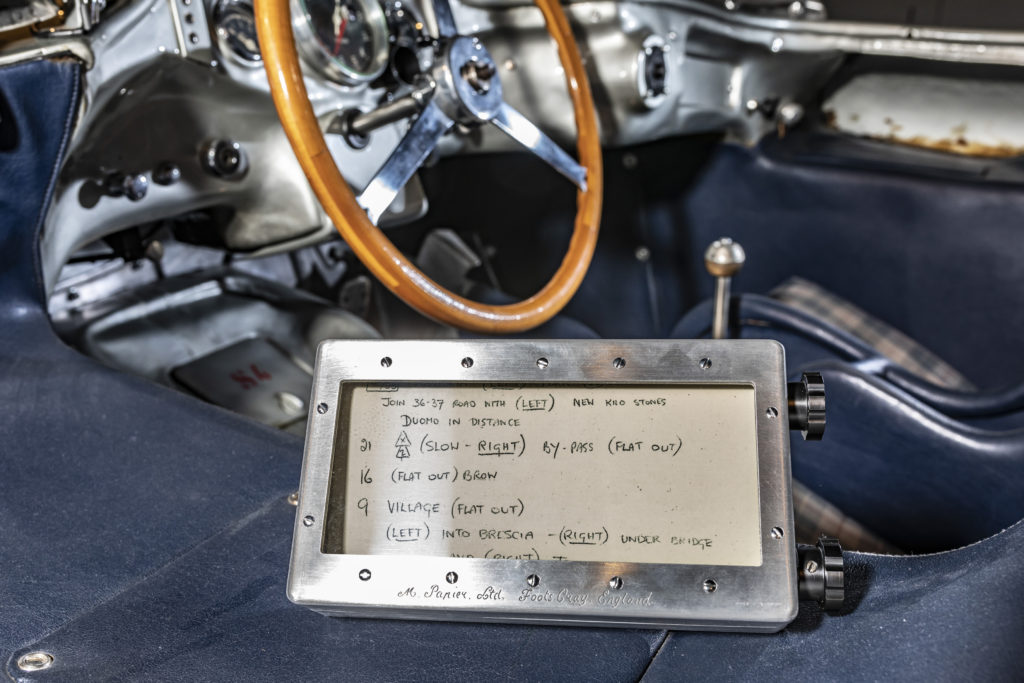 JOIN 36-37 ROAD WITH (LEFT) NEW KILO STONES
DUOMO IN DISTANCE
21 (SLOW - RIGHT) BY-PASS (FLAT OUT)
16 (FLAT OUT) BROW
9 VILLAGE (FLAT OUT)
(LEFT) INTO BRESCIA - (RIGHT) UNDER BRIDGE
AND (RIGHT)
M. Papier. Ltd. Foots Cray. England
S4